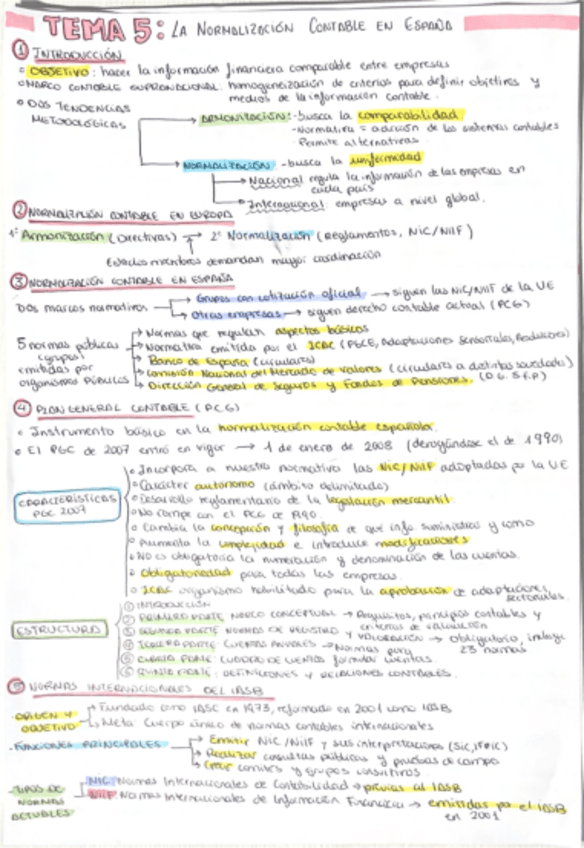 TEMA 5: LA NORMALIZACIÓN CONTABLE EN ESPAÑA
① INTRODUCCIÓN
OBJETIVO: hacer la información financiera comparable entre empresas
MARCO CONTABLE SUPRANACIONAL: homogeneización de criterios para definir objetivos y
medios de la información contable.
DOS TENDENCIAS
METODOLÓGICAS
ARMONIZACIÓN: - busca la comparabilidad.
- Normativa = adición de los sistemas contables
- Permite alternativas
NORMALIZACIÓN - busca la uniformidad
→ Nacional regula la información de las empresas en
cada país
→ Internacional: empresas a nivel global.
② NORMALIZACIÓN CONTABLE EN EUROPA
1º Armonización (Directivas) → 2º Normalización (Reglamentos, NIC/NIIF)
Estados miembros demandan mayor coordinación
③ NORMALIZACIÓN CONTABLE EN ESPAÑA
Dos marcos normativos
→ Grupos con cotización oficial → siguen las NIC/NIIF de la UE
→ Otras empresas → siguen derecho contable actual (PCG)
5 normas públicas
(grupos)
emitidas por
organismos públicos
→ Normas que regulan aspectos básicos
→ Normativa emitida por el ICAC (PGCE, Adaptaciones sectoriales, Resoluciones)
→ Banco de España (circulares)
→ Comisión Nacional del Mercado de valores (circulares a distintas sociedades)
→ Dirección General de Seguros y Fondos de Pensiones. (D.G.S.F.P)
④ PLAN GENERAL CONTABLE (PCG)
Instrumento básico en la normalización contable española.
El PGC de 2007 entró en vigor → 1 de enero de 2008 (derogándose el de 1990)
CARACTERÍSTICAS
PGC 2007
Incorpora a nuestra normativa las NIC/NIIF adoptadas por la UE
Carácter autónomo (ámbito delimitado)
Desarrollo reglamentario de la legislación mercantil.
No rompe con el PGC de 1990.
Cambia la concepción y filosofía de que info suministrar y como
Aumenta la complejidad e introduce modificaciones
No es obligatoria la numeración y denominación de las cuentas.
Obligatoriedad para todas las empresas.
ICAC organismo habilitado para la aprobación de adaptaciones
sectoriales.
ESTRUCTURA
① INTRODUCCIÓN
② PRIMERA PARTE MARCO CONCEPTUAL → Requisitos, principios contables y
criterios de valoración
③ SEGUNDA PARTE NORMAS DE REGISTRO Y VALORACIÓN → Obligatorio, incluye
23 normas
④ TERCERA PARTE: CUENTAS ANUALES → Normas para
formular cuentas.
⑤ CUARTA PARTE: CUADRO DE CUENTAS
⑥ QUINTA PARTE: DEFINICIONES Y RELACIONES CONTABLES.
⑤ NORMAS INTERNACIONALES DEL IASB
ORIGEN Y
OBJETIVO
→ Fundado como IASC en 1973, reformado en 2001 como IASB
→ Meta: Cuerpo único de normas contables internacionales
FUNCIONES PRINCIPALES
→ Emitir NIC/NIIF y sus interpretaciones (SIC, IFRIC)
→ Realizar consultas públicas y pruebas de campo
→ Crear comités y grupos consultivos
TIPOS DE
NORMAS
ACTUALES
NIC: Normas Internacionales de Contabilidad → previas al IASB
NIIF Normas Internacionales de Información Financiera → emitidas por el IASB
en 2001